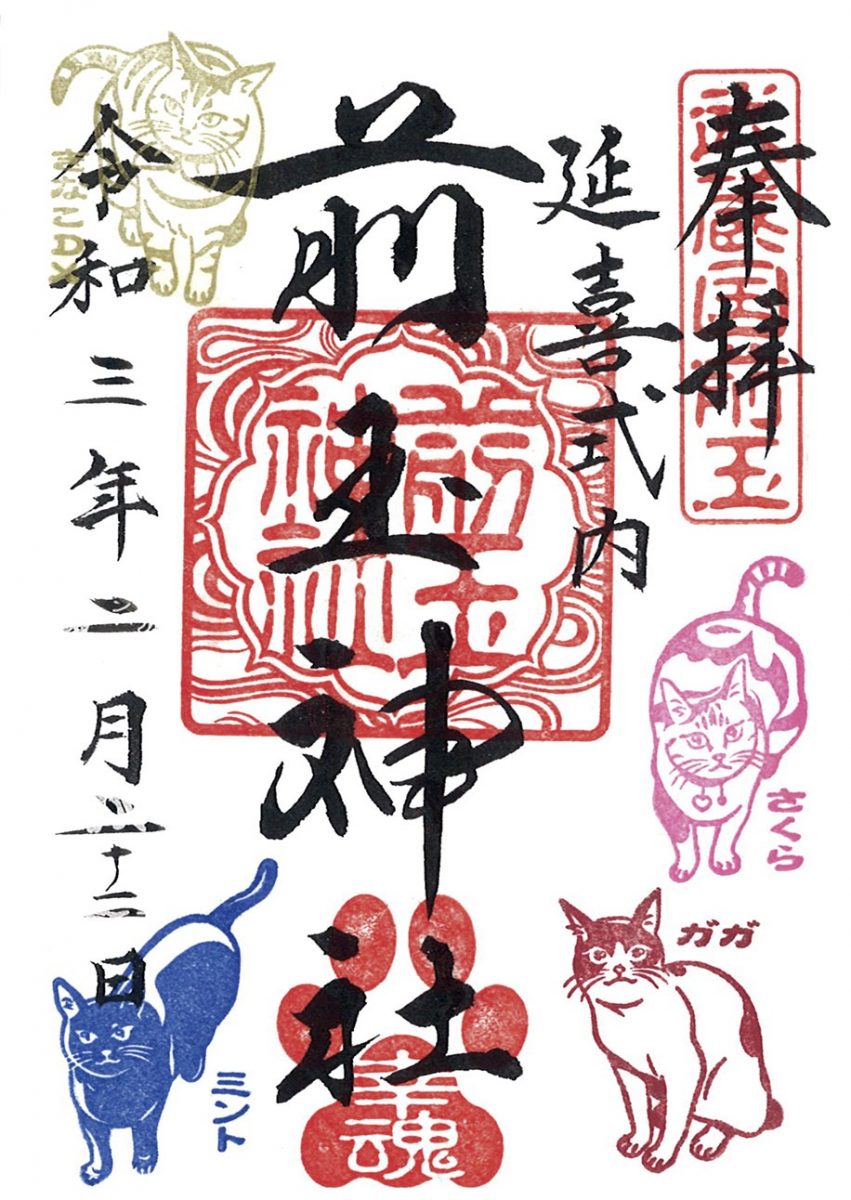 奉拝
武蔵国前玉
延喜式内
前玉神社
前玉
神社
幸魂
令和三年二月二十二日
きなこDX
さくら
ガガ
ミント